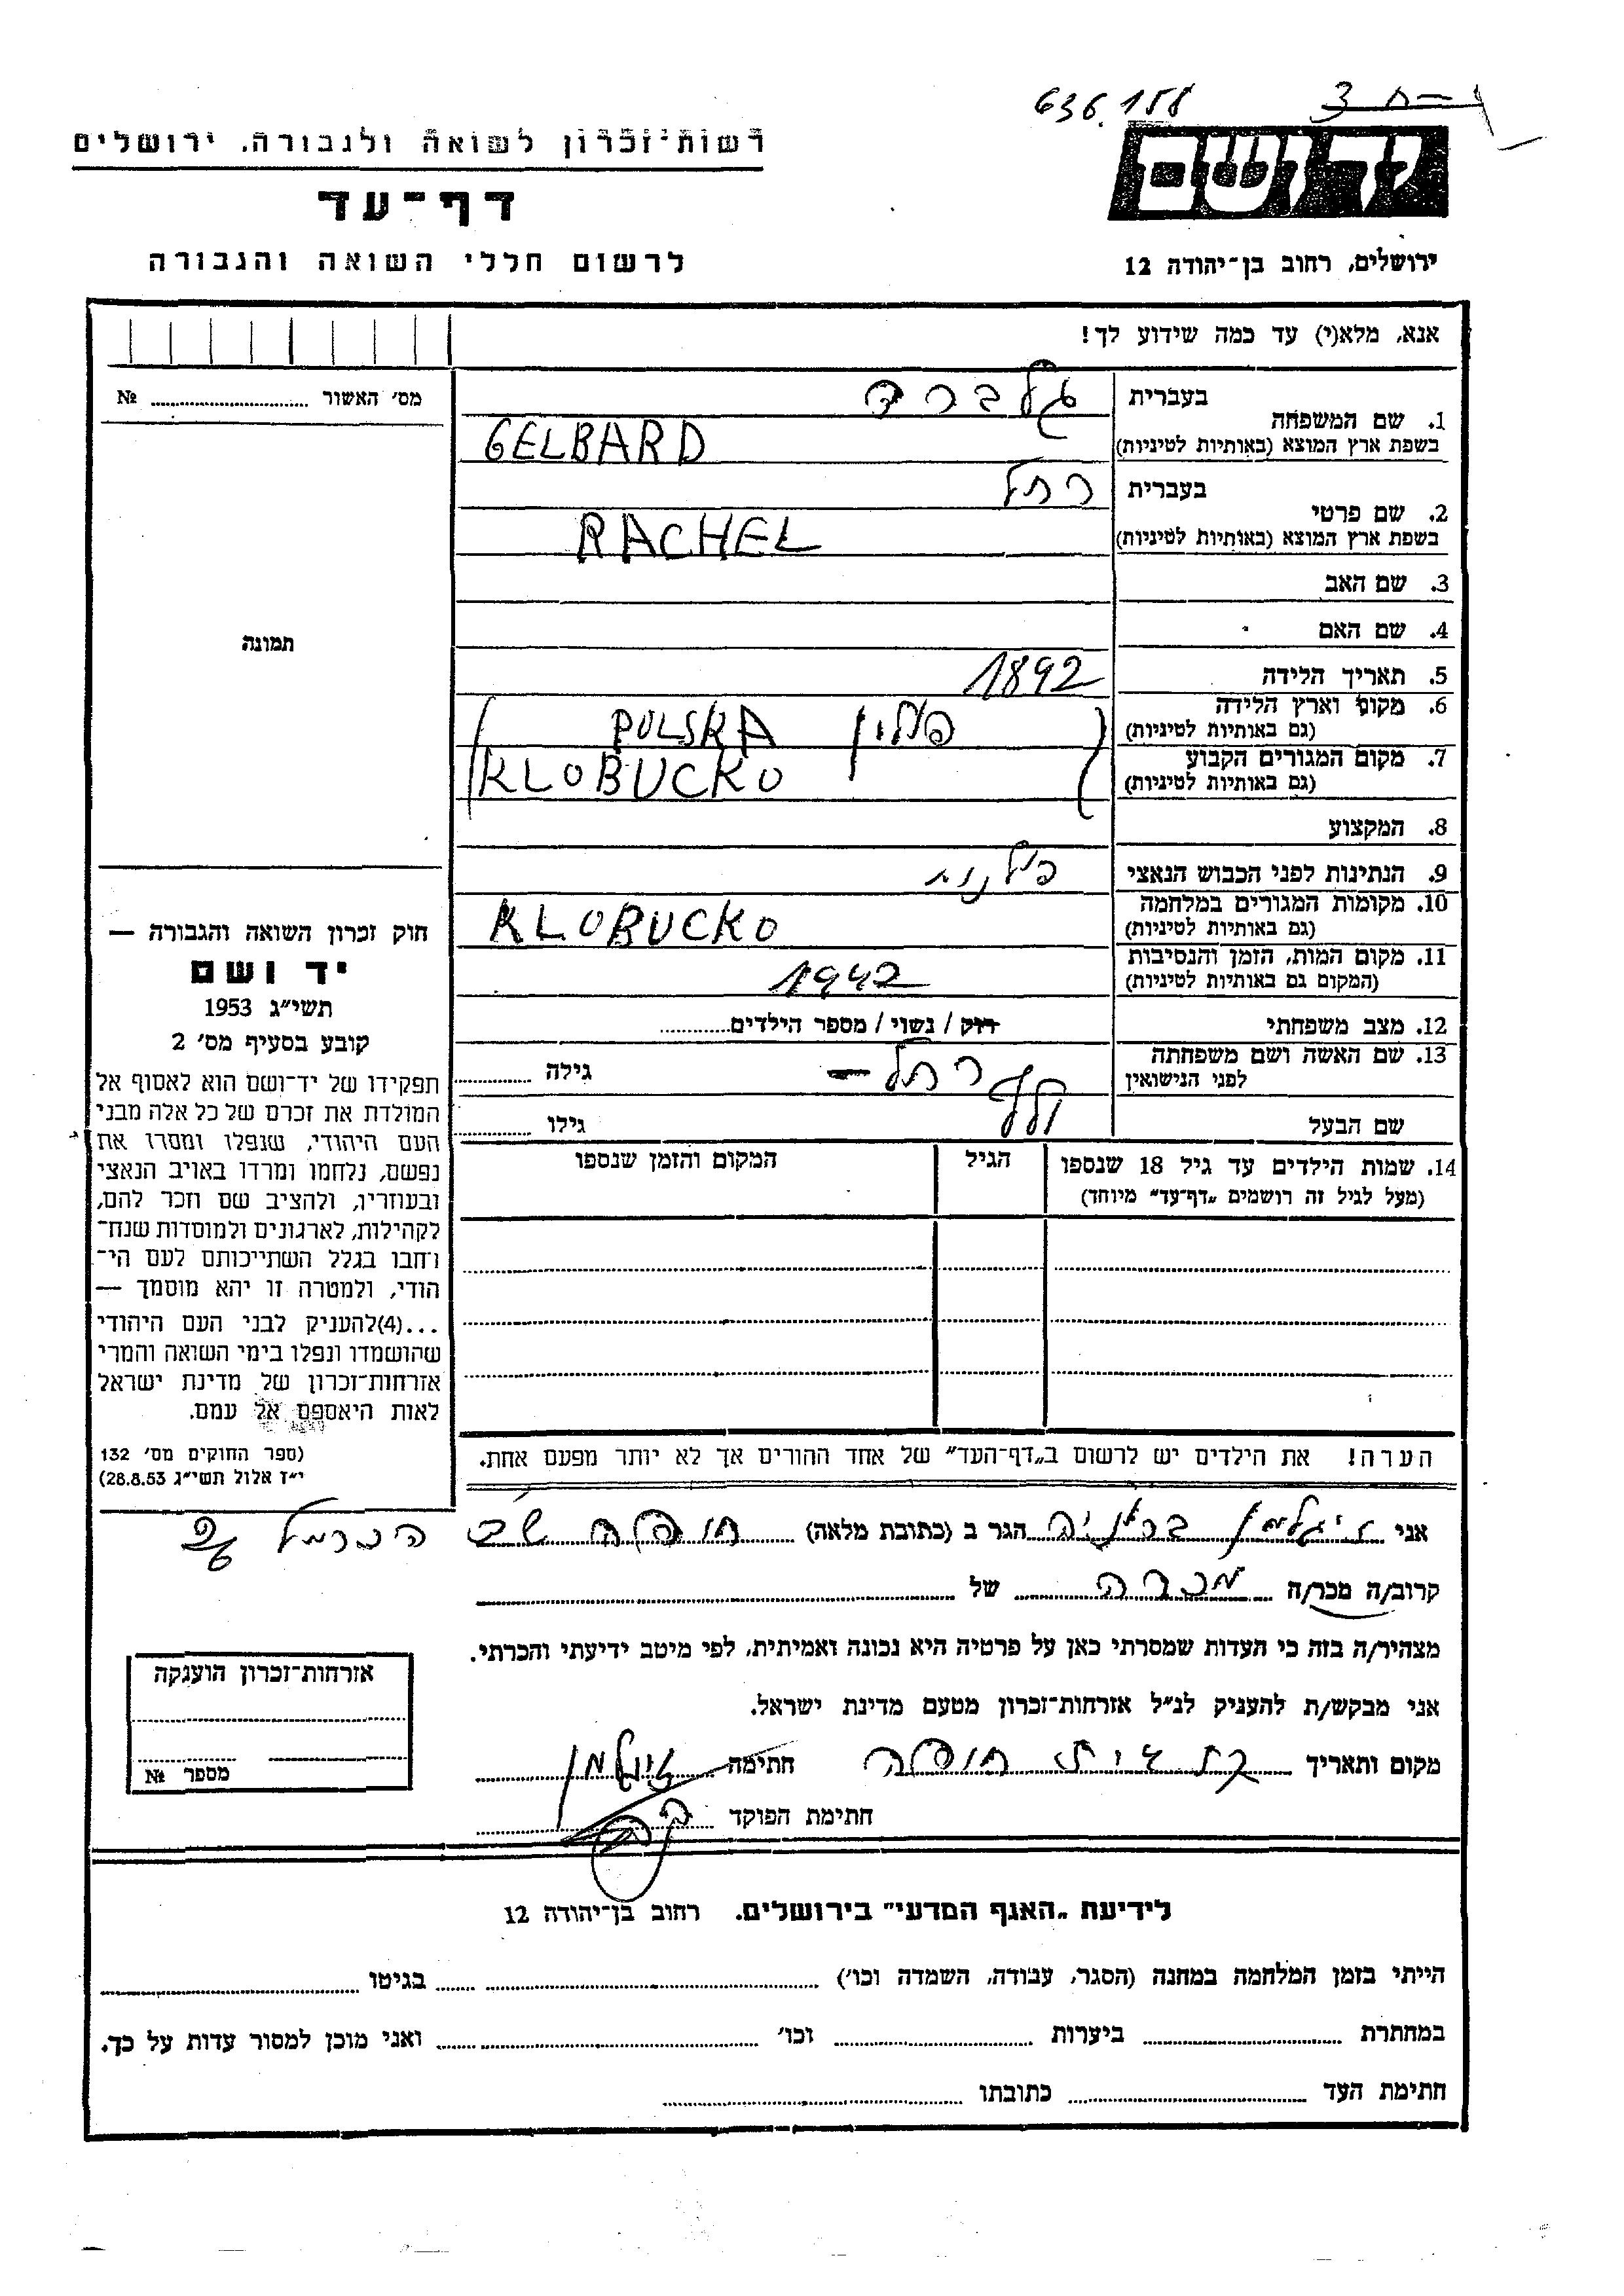 636.158
רשות־זכרון לשואה ולגבורה. ירושלים
דף־עד
לרשום חללי השואה והגבורה
יד ושם
ירושלים, רחוב בן־יהודה 12
אנא, מלא(י) עד כמה שידוע לך!
מס׳ האשור № 
תמונה
1. שם המשפחה
בעברית גלברד
בשפת ארץ המוצא (באותיות לטיניות) GELBARD
2. שם פרטי
בעברית רחל
בשפת ארץ המוצא (באותיות לטיניות) RACHEL
3. שם האב
4. שם האם
5. תאריך הלידה 1892
6. מקום וארץ הלידה פולין POLSKA
(גם באותיות לטיניות)
7. מקום המגורים הקבוע KLOBUCKO
(גם באותיות לטיניות)
8. המקצוע
9. הנתינות לפני הכבוש הנאצי פולנית
10. מקומות המגורים במלחמה KLOBUCKO
(גם באותיות לטיניות)
11. מקום המות, הזמן והנסיבות 1942
(המקום גם באותיות לטיניות)
12. מצב משפחתי רוק / נשוי / מספר הילדים
13. שם האשה ושם משפחתה רחל – גילה
לפני הנישואין
שם הבעל וולף גילו
14. שמות הילדים עד גיל 18 שנספו הגיל המקום והזמן שנספו
(מעל לגיל זה רושמים „דף־עד״ מיוחד)
הערה! את הילדים יש לרשום ב„דף־העד״ של אחד ההורים אך לא יותר מפעם אחת.
חוק זכרון השואה והגבורה —
יד ושם
תשי״ג 1953
קובע בסעיף מס׳ 2
תפקידו של יד־ושם הוא לאסוף אל
המולדת את זכרם של כל אלה מבני
העם היהודי, שנפלו ומסרו את
נפשם, נלחמו ומרדו באויב הנאצי
ובעוזריו, ולהציב שם וזכר להם,
לקהילות, לארגונים ולמוסדות שנח־
רחבו בגלל השתייכותם לעם הי־
הודי, ולמטרה זו יהא מוסמך —
...(4)להעניק לבני העם היהודי
שהושמדו ונפלו בימי השואה והמרי
אזרחות־זכרון של מדינת ישראל
לאות היאספם אל עמם.
(ספר החוקים מס׳ 132
י״ז אלול תשי״ג 28.8.53)
אני זיגלמן בראניה הגר ב (כתובת מלאה) חולדה הכרמל
קרוב/ה מכר/ה מכרה של
מצהיר/ה בזה כי העדות שמסרתי כאן על פרטיה היא נכונה ואמיתית, לפי מיטב ידיעתי והכרתי.
אני מבקש/ת להעניק לנ״ל אזרחות־זכרון מטעם מדינת ישראל.
מקום ותאריך חולדה חתימה זיגלמן
חתימת הפוקד
אזרחות־זכרון הוענקה
מספר №
לידיעת „האגף המדעי״ בירושלים. רחוב בן־יהודה 12
הייתי בזמן המלחמה במחנה (הסגר, עבודה, השמדה וכו׳) בגיטו
במחתרת ביערות וכו׳ ואני מוכן למסור עדות על כך.
חתימת העד כתובתו